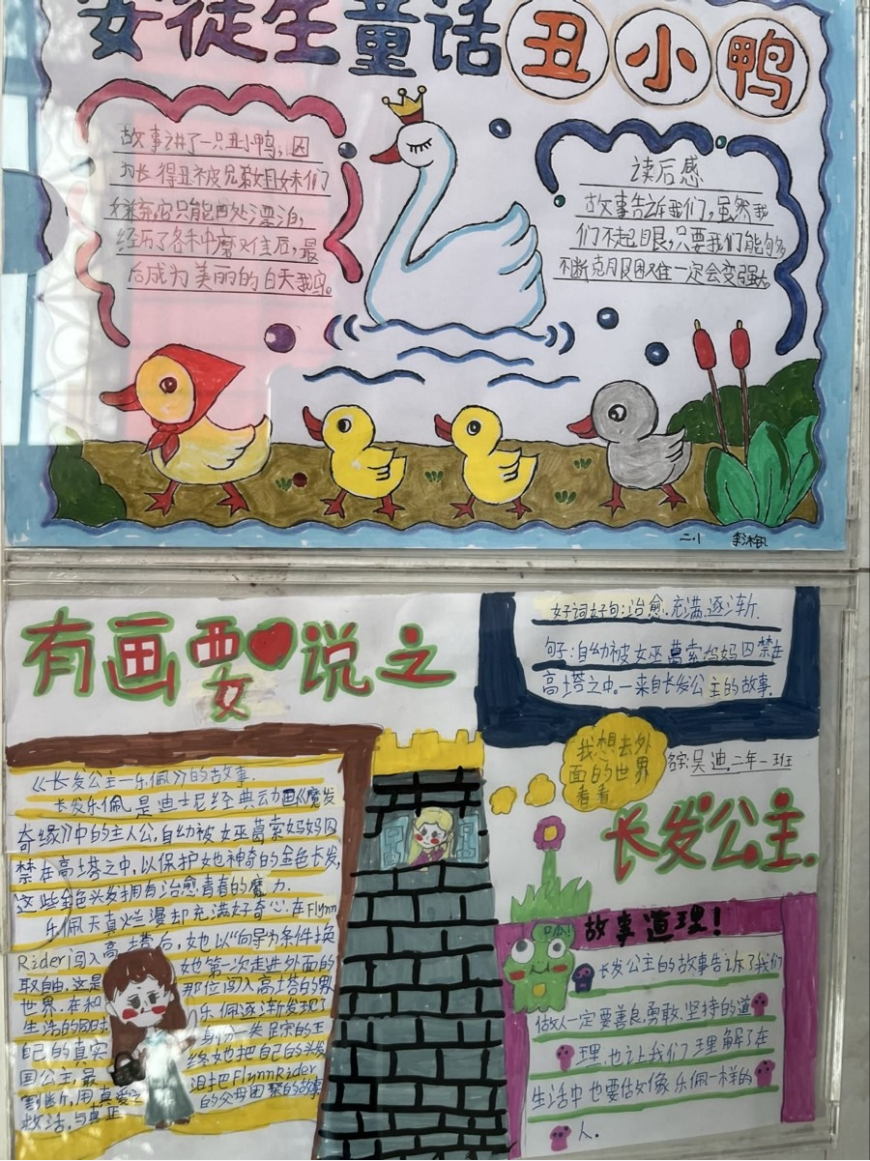 安徒生童话 丑小鸭
故事讲了一只丑小鸭，因
为长得丑被兄弟姐妹们
嫌弃，它只能四处漂泊，
经历了各种磨难后，最
后成为美丽的白天鹅。
读后感
故事告诉我们，虽然我
们不起眼，只要我们能够
不断克服困难一定会变强大。
二.1
有画要说之
好词好句：治愈.充满.逐渐.
句子：自幼被女巫葛索妈妈囚禁在
高塔之中.一来自长发公主的故事.
我想去外
面的世界
看看
吴迪.二年一班
长发公主.
《长发公主一乐佩》的故事.
长发乐佩.是迪士尼经典动画《魔发
奇缘》中的主人公，自幼被女巫葛索妈妈囚
禁在高塔之中，以保护她神奇的金色长发，
这些金色头发拥有治愈青春的魔力.
乐佩天真烂漫却充满好奇心.在Flynn
Rider闯入高塔后，她以“向导”为条件换
取自由.这是 她第一次走进外面的
世界.在和 那位闯入高塔的男
生活的同时 乐佩逐渐发现了
自己的真实 身份一失踪的王
国公主，最 终她把自己的头发
割断，用真爱之泪把FlynnRider
救活，与真正的父母团聚的故事
故事道理！
长发公主的故事告诉了我们
做人一定要善良.勇敢.坚持的道
理.也让我们理解了在
生活中也要做像乐佩一样的
人.